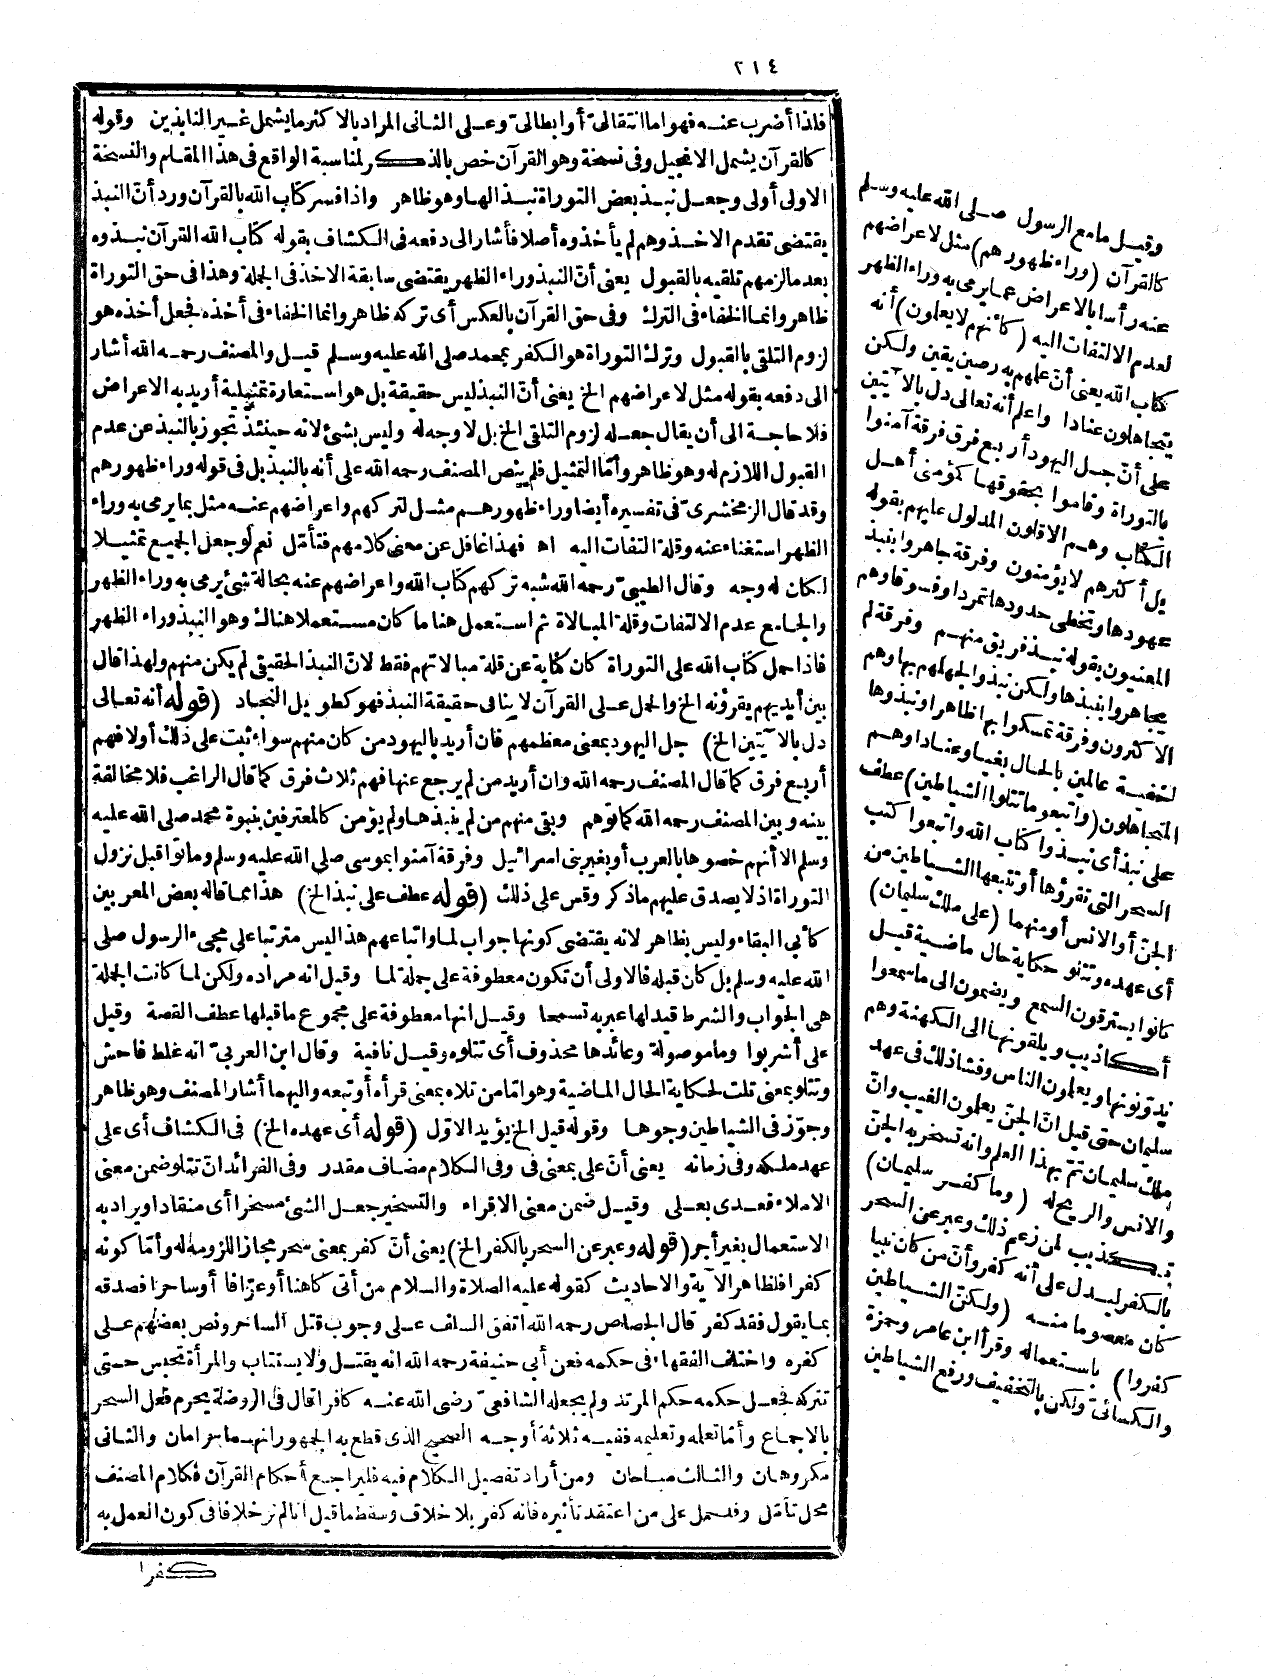 ٢١٤
فلذا أضرب عنه فهو اما انتقالىّ أو ابطالىّ وعلى الثانى المراد بالاكثر ما يشمل غير النابذين وقوله
كالقرآن يشمل الانجيل وفى نسخة وهو القرآن خص بالذكر لمناسبة الواقع فى هذا المقام والنسخة
الاولى أولى وجعل نبذ بعض التوراة نبذ الها وهو ظاهر واذا فسر كتاب الله بالقرآن ورد أنّ النبذ
يقتضى تقدم الاخذ وهم لم يأخذوه أصلا فأشار الى دفعه فى الكشاف بقوله كتاب الله القرآن نبذوه
بعد ما لزمهم تلقيه بالقبول يعنى أنّ النبذ وراء الظهر يقتضى سابقة الاخذ فى الجملة وهذا فى حق التوراة
ظاهر وانما الخفاء فى الترك وفى حق القرآن بالعكس أى تركه ظاهر وانما الخفاء فى أخذه فجعل أخذه هو
لزوم التلقى بالقبول وترك التوراة هو الكفر بمحمد صلى الله عليه وسلم قيل والمصنف رحمه الله أشار
الى دفعه بقوله مثل لاعراضهم الخ يعنى أنّ النبذ ليس حقيقة بل هو استعارة تمثيلية أريد به الاعراض
فلا حاجة الى أن يقال جعله لزوم التلقى الخ بل لا وجه له وليس بشئ لانه حينئذ تجوز بالنبذ عن عدم
القبول اللازم له وهو ظاهر وأمّا التمثيل فلم ينص المصنف رحمه الله على أنه بالنبذ بل فى قوله وراء ظهورهم
وقد قال الزمخشرىّ فى تفسيره أيضا وراء ظهورهم مثل لتركهم واعراضهم عنه مثل بما يرمى به وراء
الظهر استغناء عنه وقلة التفات اليه اه فهذا غافل عن معنى كلامهم فتأمّل نعم لو جعل الجميع تمثيلا
لكان له وجه وقال الطيبىّ رحمه الله شبه تركهم كتاب الله واعراضهم عنه بحالة شئ يرمى به وراء الظهر
والجامع عدم الالتفات وقلة المبالاة ثم استعمل هنا ما كان مستعملا هناك وهو النبذ وراء الظهر
فاذا حمل كتاب الله على التوراة كان كناية عن قلة مبالاتهم فقط لانّ النبذ الحقيقى لم يكن منهم ولهذا قال
بين أيديهم يقرؤنه الخ والحمل على القرآن لا ينافى حقيقة النبذ فهو كطويل النجاد (قوله أنه تعالى
دل بالآيتين الخ) جل اليهود بمعنى معظمهم فان أريد باليهود من كان منهم سواء ثبت على ذلك أولا فهم
أربع فرق كما قال المصنف رحمه الله وان أريد من لم يرجع عنها فهم ثلاث فرق كما قال الراغب فلا مخالفة
بينه وبين المصنف رحمه الله كما توهم وبقى منهم من لم ينبذها ولم يؤمن كالمعترفين بنبوة محمد صلى الله عليه
وسلم الا أنهم خصوها بالعرب أو بغير بنى اسرائيل وفرقة آمنوا بموسى صلى الله عليه وسلم وماتوا قبل نزول
التوراة اذ لا يصدق عليهم ما ذكر وقس على ذلك (قوله عطف على نبذ الخ) هذا مما قاله بعض المعربين
كأبى البقاء وليس بظاهر لانه يقتضى كونها جواب لما واتباعهم هذا ليس مترتبا على مجىء الرسول صلى
الله عليه وسلم بل كان قبله فالاولى أن تكون معطوفة على جملة لما وقيل انه مراده ولكن لما كانت الجملة
هى الجواب والشرط قيد لها عبر به تسمحا وقيل انها معطوفة على مجموع ما قبلها عطف القصة وقيل
على أشربوا وما موصولة وعائدها محذوف أى تتلوه وقيل نافية وقال ابن العربىّ انه غلط فاحش
وتتلو بمعنى تلت لحكاية الحال الماضية وهو امّا من تلاه بمعنى قرأه أو تبعه واليهما أشار المصنف وهو ظاهر
وجوّز فى الشياطين وجوها وقوله قيل الخ يؤيد الاوّل (قوله أى عهده الخ) فى الكشاف أى على
عهد ملكه وفى زمانه يعنى أنّ على بمعنى فى وفى الكلام مضاف مقدر وفى الفرائد انّ تتلو ضمن معنى
الاملاء فعدى بعلى وقيل ضمن معنى الاقراء والتسخير جعل الشئ مسخرا أى منقادا ويراد به
الاستعمال بغير أجر (قوله وعبر عن السحر بالكفر الخ) يعنى أنّ كفر بمعنى سحر مجازا للزومه له وأمّا كونه
كفرا فلظاهر الآية والاحاديث كقوله عليه الصلاة والسلام من أتى كاهنا أو عرّافا أو ساحرا فصدقه
بما يقول فقد كفر قال الجصاص رحمه الله اتفق السلف على وجوب قتل الساحر ونص بعضهم على
كفره واختلف الفقهاء فى حكمه فعن أبى حنيفة رحمه الله انه يقتل ولا يستتاب والمرأة تحبس حتى
تتركه فجعل حكمه حكم المرتد ولم يجعله الشافعىّ رضى الله عنه كافرا قال فى الروضة يحرم فعل السحر
بالاجماع وأمّا تعلمه وتعليمه ففيه ثلاثة أوجه الصحيح الذى قطع به الجمهور انهما حرامان والثانى
مكروهان والثالث مباحان ومن أراد تفصيل الكلام فيه فليراجع أحكام القرآن فكلام المصنف
محل تأمّل وقد حمل على من اعتقد تأثيره فانه كفر بلا خلاف وسقط ما قيل انا لم نر خلافا فى كون العمل به
كفرا
وقيل ما مع الرسول صلى الله عليه وسلم
كالقرآن (وراء ظهورهم) مثل لاعراضهم
عنه رأسا بالاعراض عما يرمى به وراء الظهر
لعدم الالتفات اليه (كأنهم لا يعلمون) أنه
كتاب الله يعنى أنّ علمهم به رصين يقين ولكن
يتجاهلون عنادا واعلم أنه تعالى دل بالآيتين
على أنّ جل اليهود أربع فرق فرقة آمنوا
بالتوراة وقاموا بحقوقها كمؤمنى أهل
الكتاب وهم الاقلون المدلول عليهم بقوله
بل أكثرهم لا يؤمنون وفرقة جاهروا بنبذ
عهودها وتخطى حدودها تمردا وفسوقا وهم
المعنيون بقوله نبذ فريق منهم وفرقة لم
يجاهروا بنبذها ولكن نبذوا لجهلهم بها وهم
الاكثرون وفرقة تمسكوا بها ظاهرا ونبذوها
خفية عالمين بالحال بغيا وعنادا وهم
المتجاهلون (واتبعوا ما تتلوا الشياطين) عطف
على نبذ أى نبذوا كتاب الله واتبعوا كتب
السحر التى تقرؤها أو تتبعها الشياطين من
الجنّ أو الانس أو منهما (على ملك سليمان)
أى عهده وتتلو حكاية حال ماضية قيل
كانوا يسترقون السمع ويضمون الى ما سمعوا
أكاذيب ويلقونها الى الكهنة وهم
يدوّنونها ويعلمون الناس وفشا ذلك فى عهد
سليمان حتى قيل انّ الجنّ يعلمون الغيب وانّ
ملك سليمان تمّ بهذا العلم وانه تسخر به الجنّ
والانس والريح له (وما كفر سليمان)
تكذيب لمن زعم ذلك وعبر عن السحر
بالكفر ليدل على أنه كفر وأنّ من كان نبيا
كان معصوما منه (ولكنّ الشياطين
كفروا) باستعماله وقرأ ابن عامر وحمزة
والكسائىّ ولكن بالتخفيف ورفع الشياطين